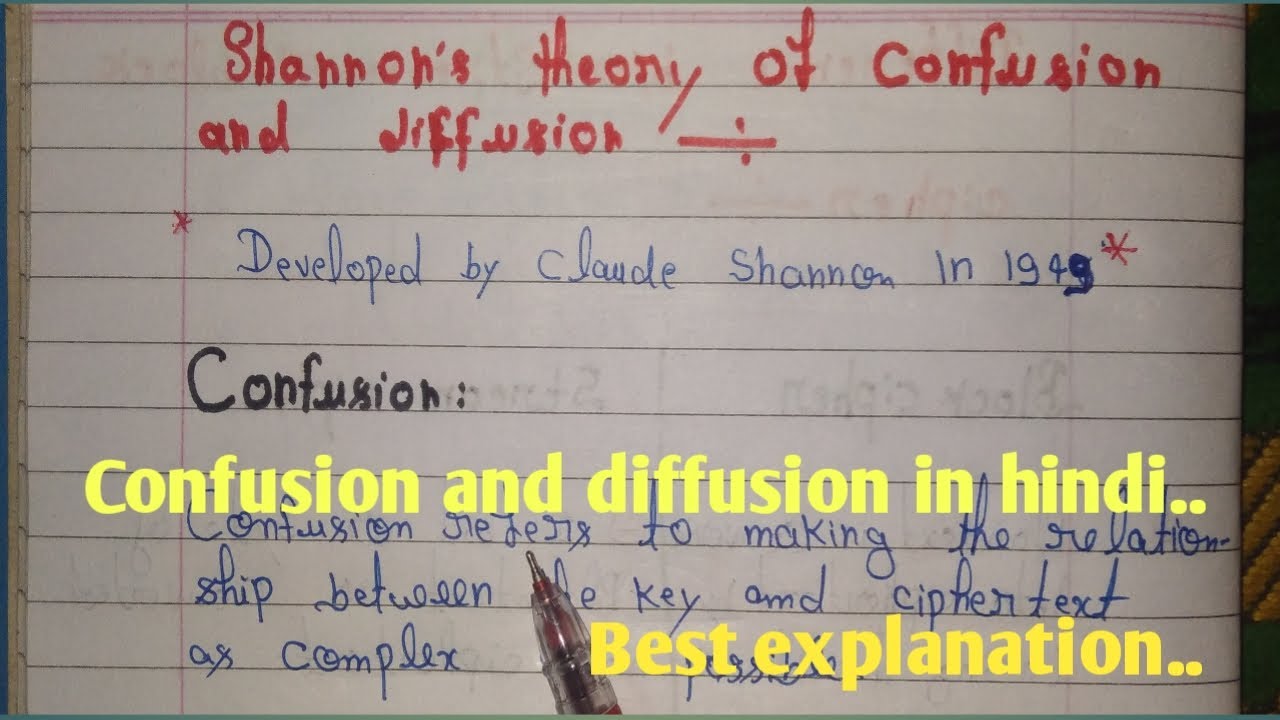 Shannon's theory of Confusion
and diffusion ÷
* Developed by Claude Shannon in 1949 *
Confusion:
Confusion and diffusion in hindi..
Confusion refers to making the relation-
ship between the key and ciphertext
as complex possible
Best explanation..